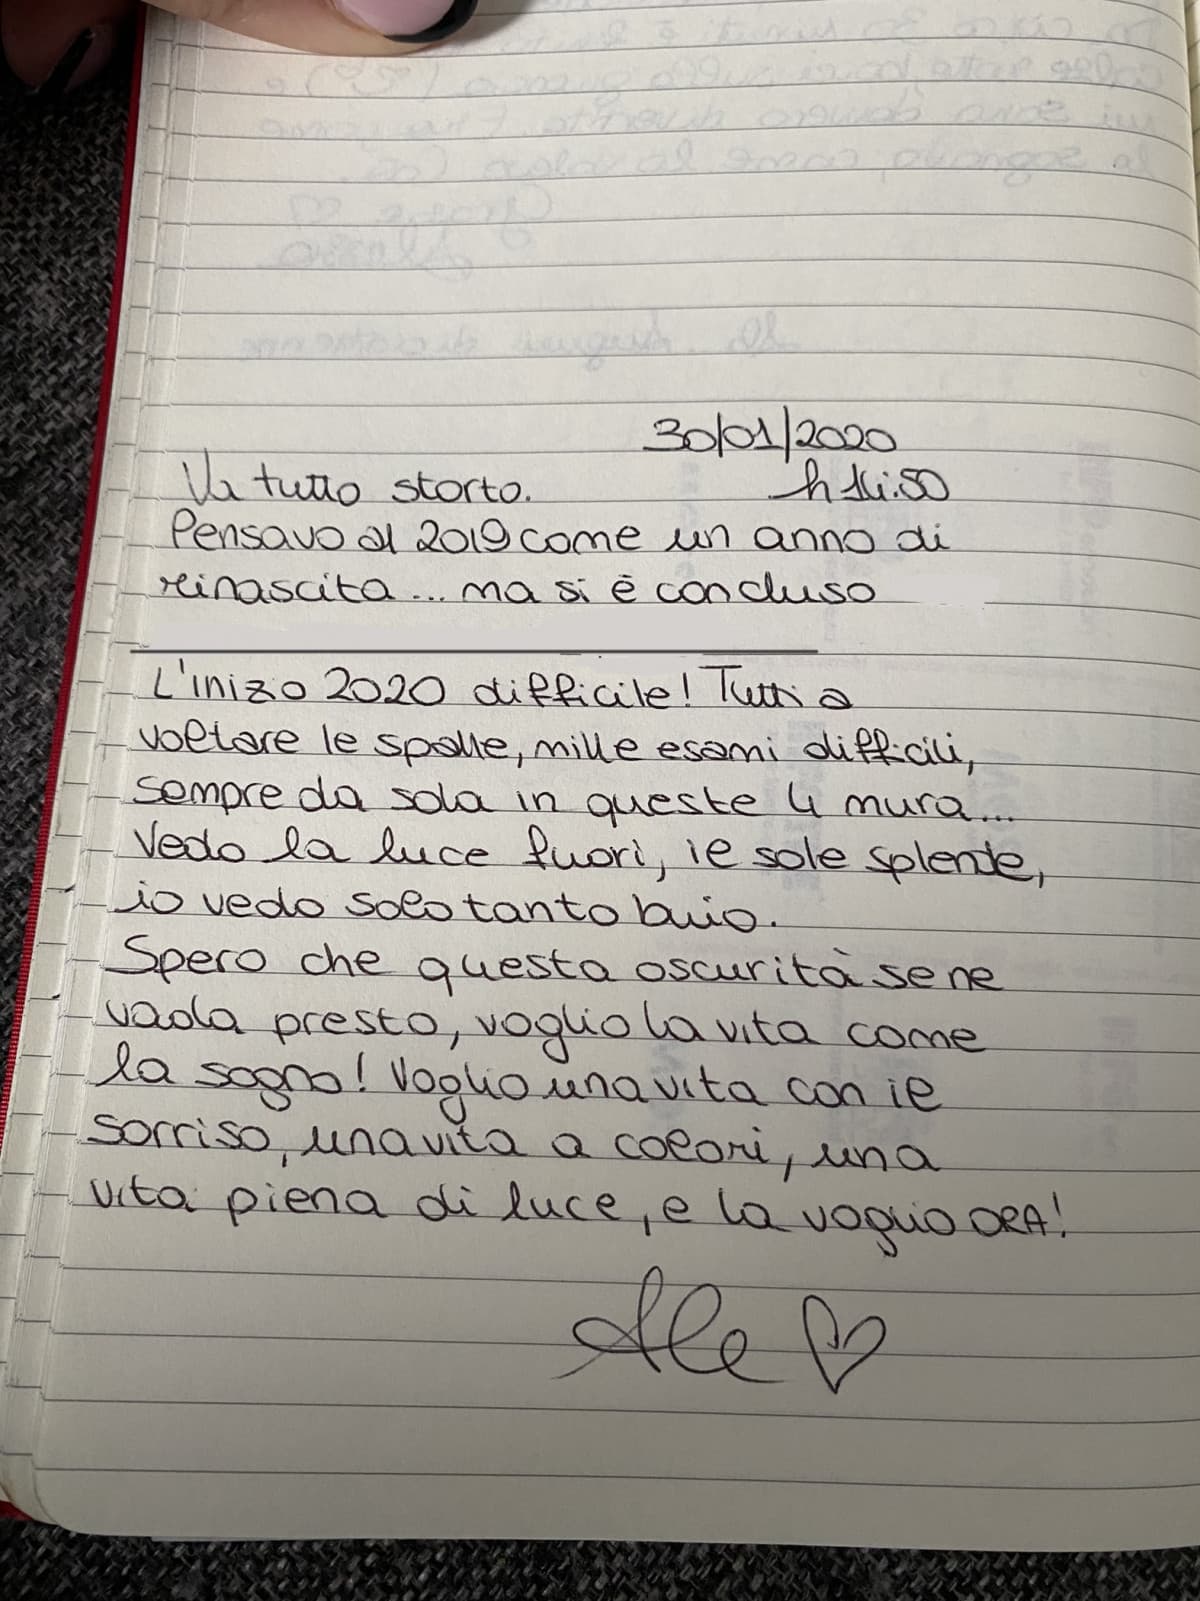 30/01/2020
Va tutto storto.
h 14:50
Pensavo al 2019 come un anno di
rinascita... ma si è concluso
L'inizio 2020 difficile! Tutti a
voltare le spalle, mille esami difficili,
sempre da sola in queste 4 mura...
Vedo la luce fuori, il sole splende,
io vedo solo tanto buio.
Spero che questa oscurità se ne
vada presto, voglio la vita come
la sogno! Voglio una vita con il
sorriso, una vita a colori, una
vita piena di luce, e la voglio ORA!
Ale ♡